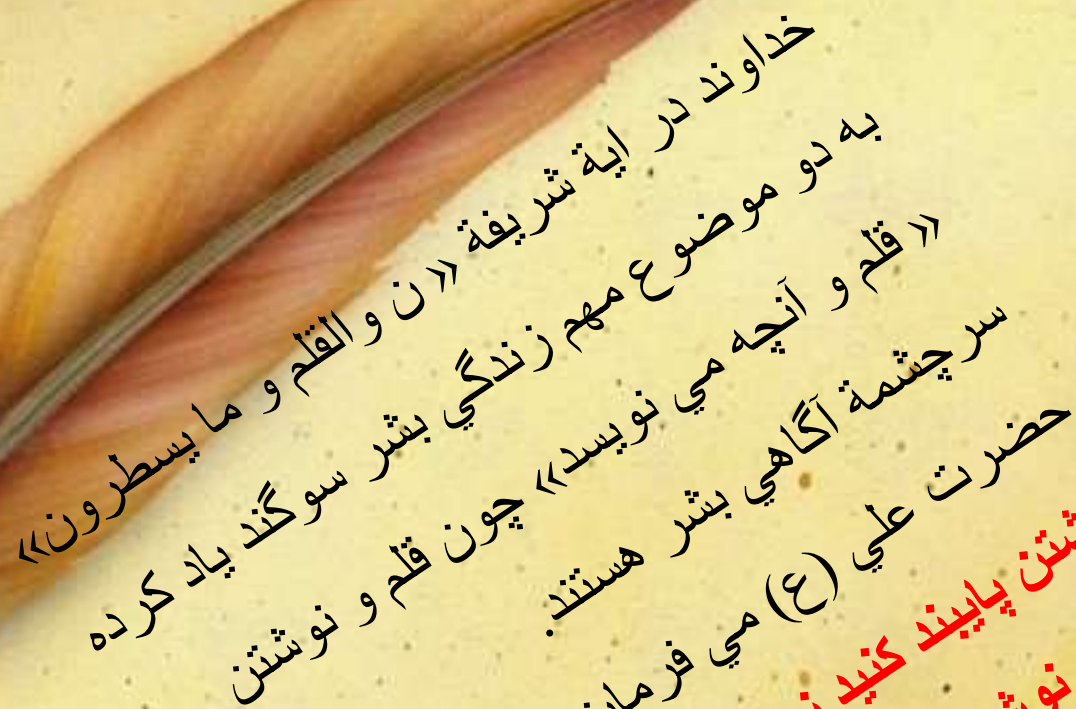 خداوند در اية شريفة «ن و القلم و ما يسطرون»
به دو موضوع مهم زندگي بشر سوگند ياد كرده
«قلم و آنچه مي نويسد» چون قلم و نوشتن
سرچشمة آگاهي بشر هستند.
حضرت علي (ع) مي
پايبند كنيد